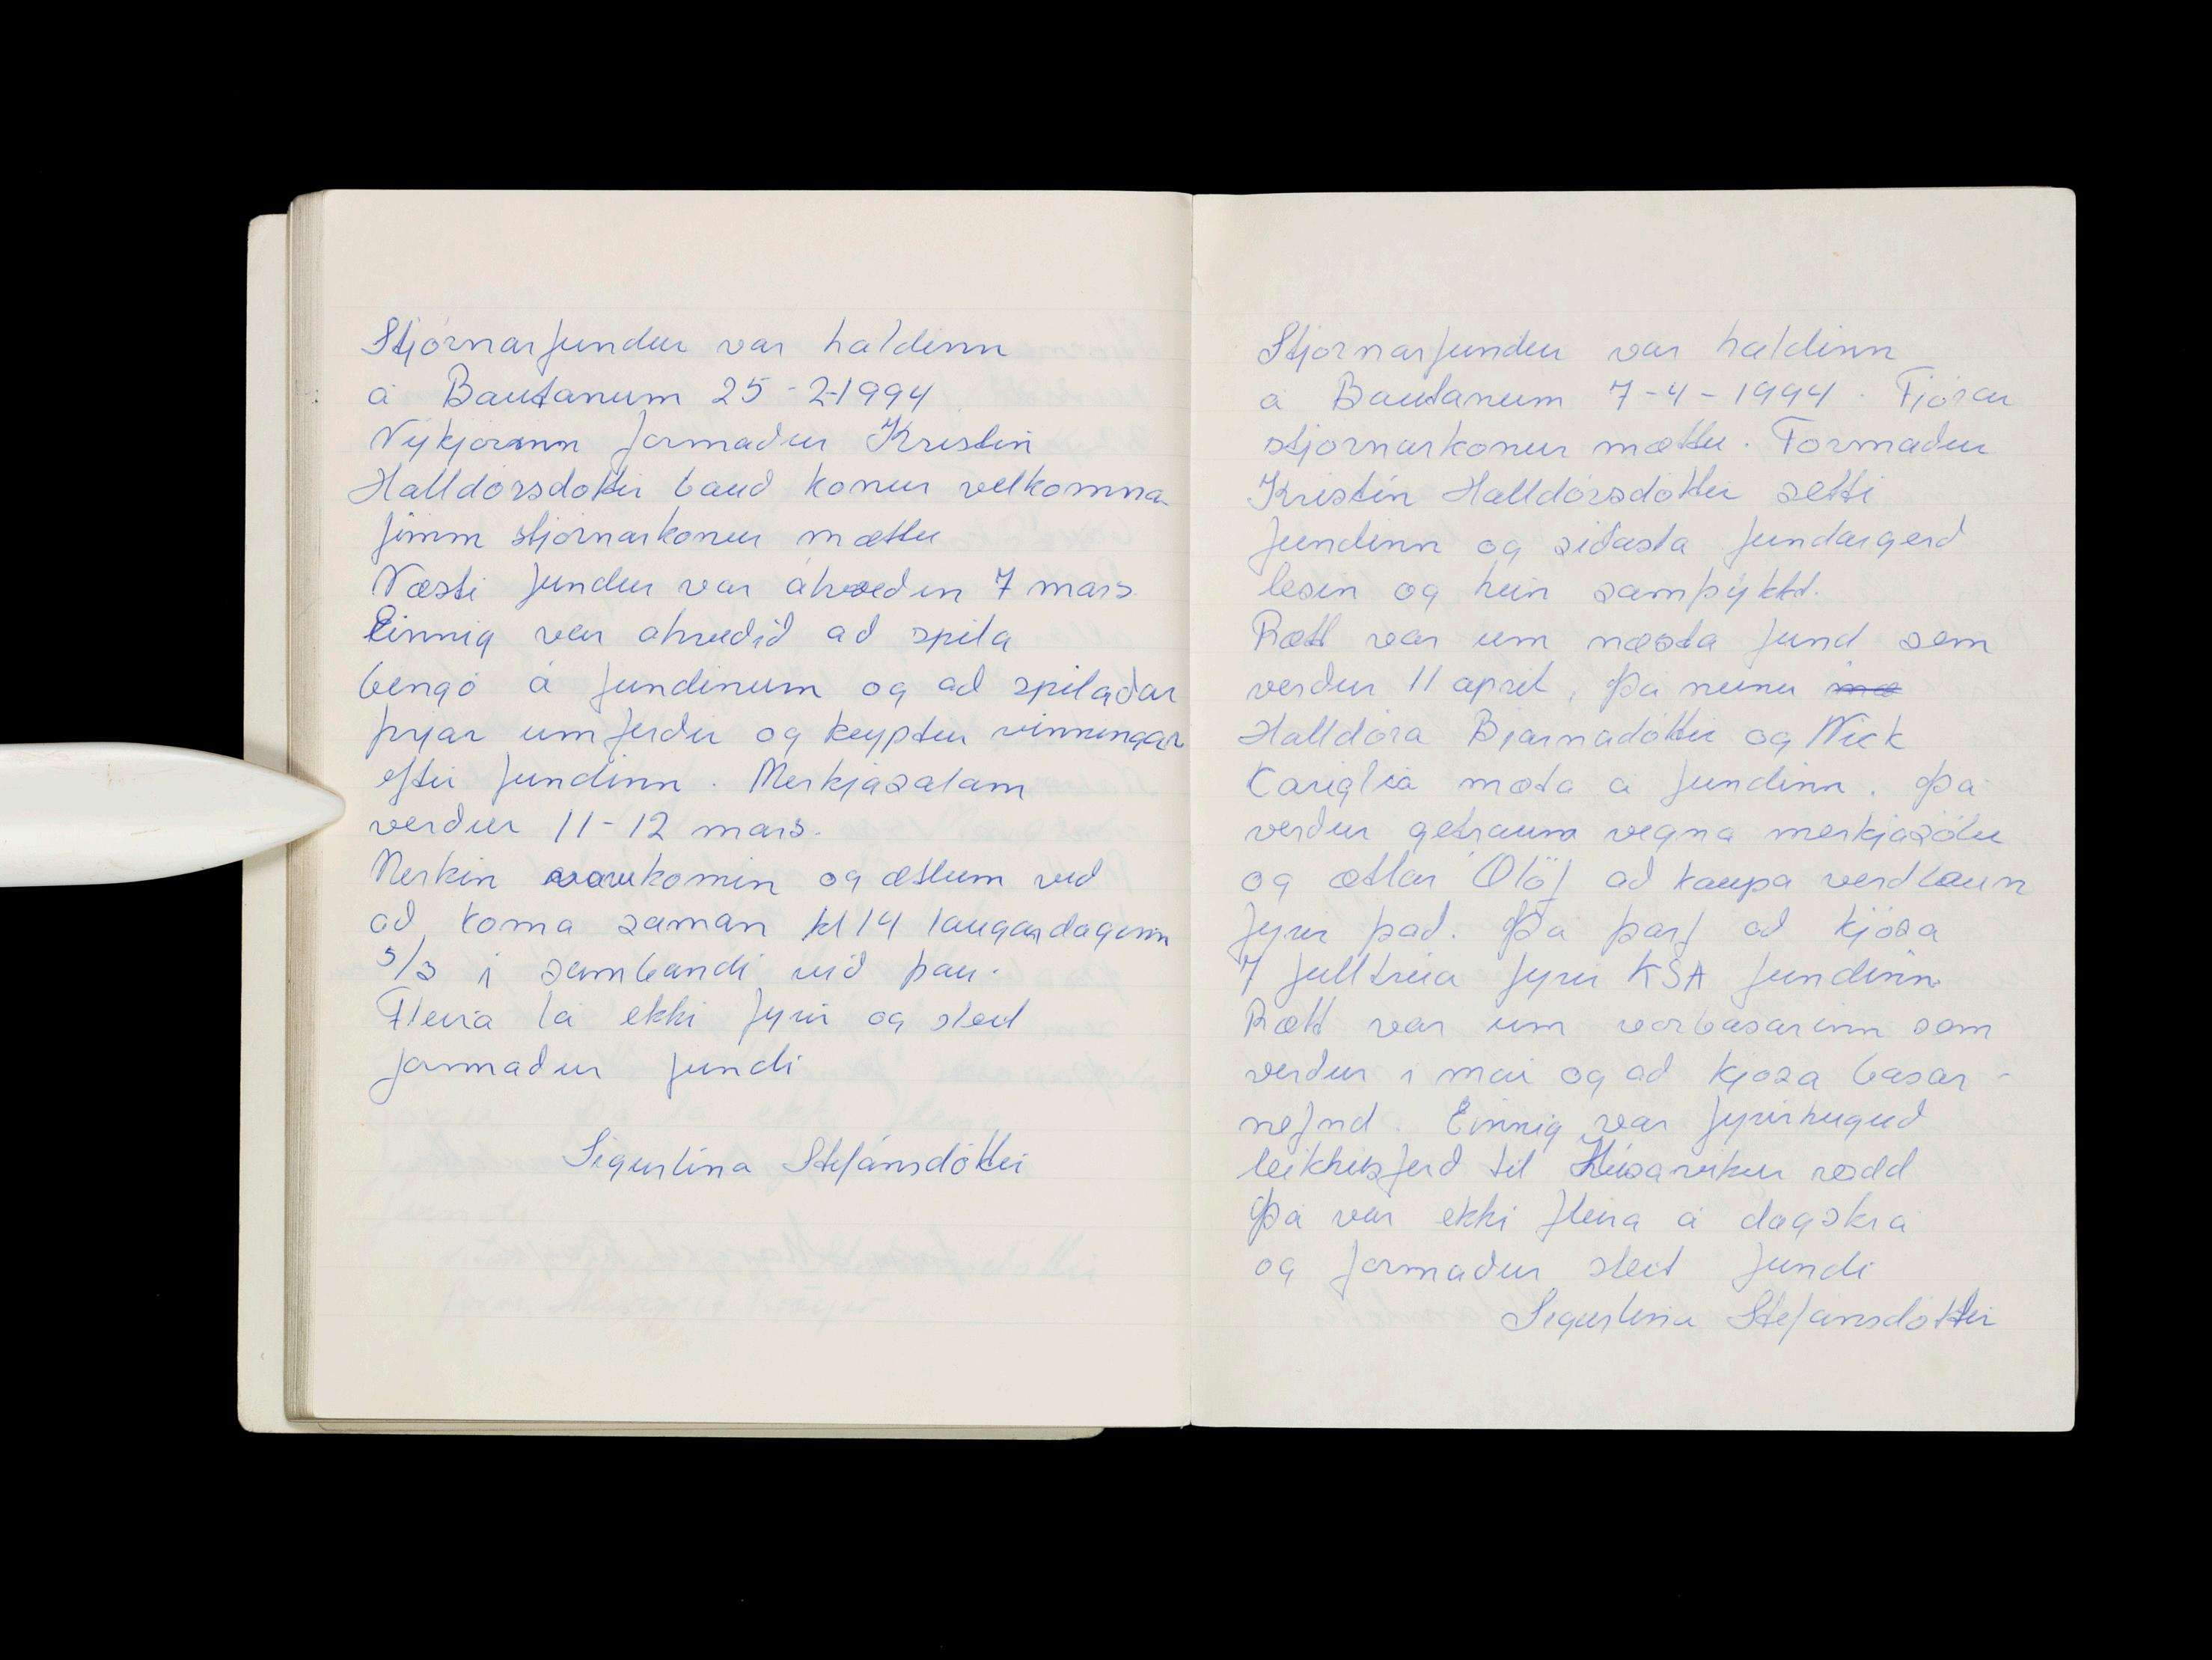 Stjórnarfundur var haldinn
á Bautanum 25-2-1994
Nýkjörinn formaður Kristín
Halldórsdóttir bauð konur velkomna
fimm stjórnarkonur mættu
Næsti fundur var ákveðin 7 mars
Einnig var ákveðið að spila
bengó á fundinum og að spilaðar
þrjár umferðir og keyptur vinningar
eftir fundinn. Merkjasalam
verður 11-12 mars.
Merkin komin og ætlum við
að koma saman kl 14 laugardaginn
5/3 í sambandi við þau.
Fleira lá ekki fyrir og sleit
formaður fundi
Sigurlína Stefánsdóttir
Stjórnarfundur var haldinn
á Bautanum 7-4-1994. Fjórar
stjórnarkonur mættu. Formaður
Kristín Halldórsdóttir setti
fundinn og síðasta fundargerð
lesin og hún samþýktt.
Rætt var um næsta fund sem
verður 11 april, Þá munu
Halldóra Bjarnadóttir og Nick
Cariglia mæta á fundinn. Þá
verður getraum vegna merkjasölu
og ætlar Ólöf að kaupa verðlaun
fyrir það. Þá þarf að kjósa
7 fulltrúa fyrir KSA fundinn.
Rætt var um vorbasarinn sem
verður í mai og að kjósa basar-
nefnd. Einnig var fyrirhuguð
leikhúsferð til Húsavíkur rædd
Þá var ekki fleira á dagskrá
og formaður sleit fundi
Sigurlína Stefánsdóttir